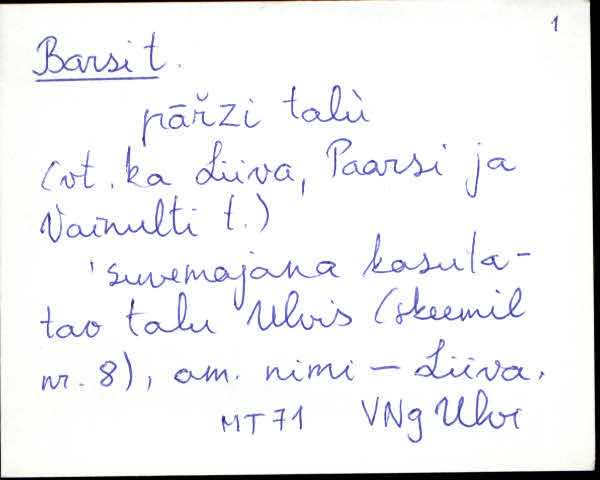 1
Barsi t.
pāřzi talù
(vt. ka Liiva, Paarsi ja
Vainulti t.)
'suvemajana kasuta-
tav talu Ulvis (skeemil
nr. 8), am. nimi – Liiva.
MT 71 VNg Ulvi